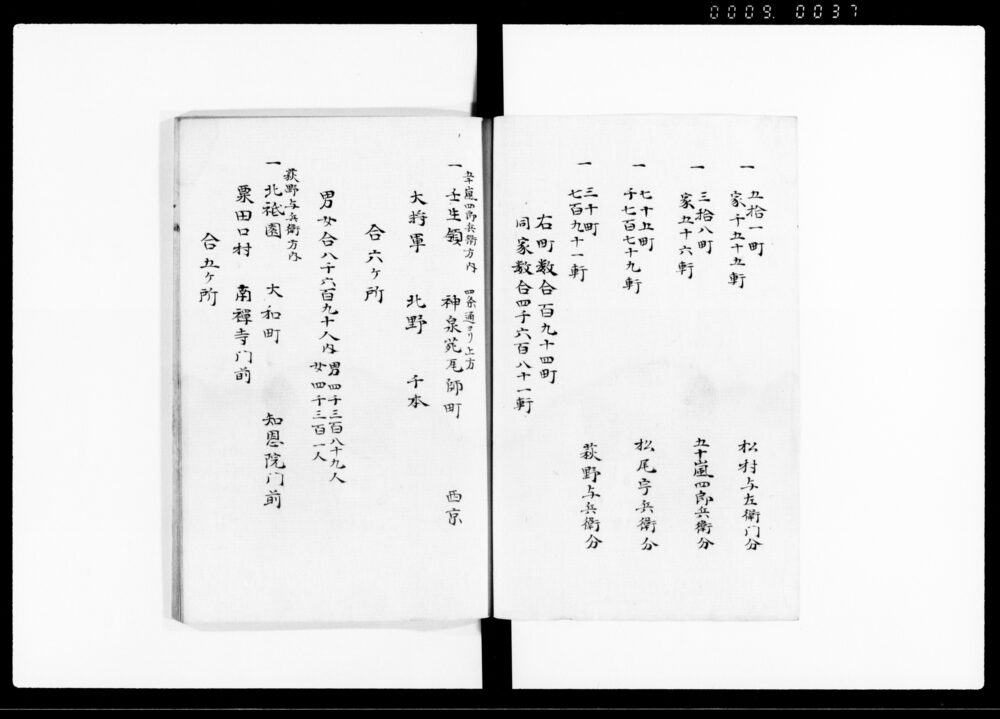 0009. 0037
一 五拾一町
家千五十五軒
松村与左衛門分
一 三拾八町
家五十六軒
五十嵐四郎兵衛分
一 七十五町
千七百七十九軒
松尾宇兵衛分
一 三十町
七百九十一軒
荻野与兵衛分
右町数合百九十四町
同家数合四千六百八十一軒
五十嵐四郎兵衛方内 四条通ヨリ上方
一 壬生領 神泉苑瓦師町 西京
大将軍 北野 千本
合六ヶ所
男女合八千六百九十人内 男四千三百八十九人
女四千三百一人
荻野与兵衛方内
一 北祇園 大和町 知恩院門前
粟田口村 南禅寺門前
合五ヶ所